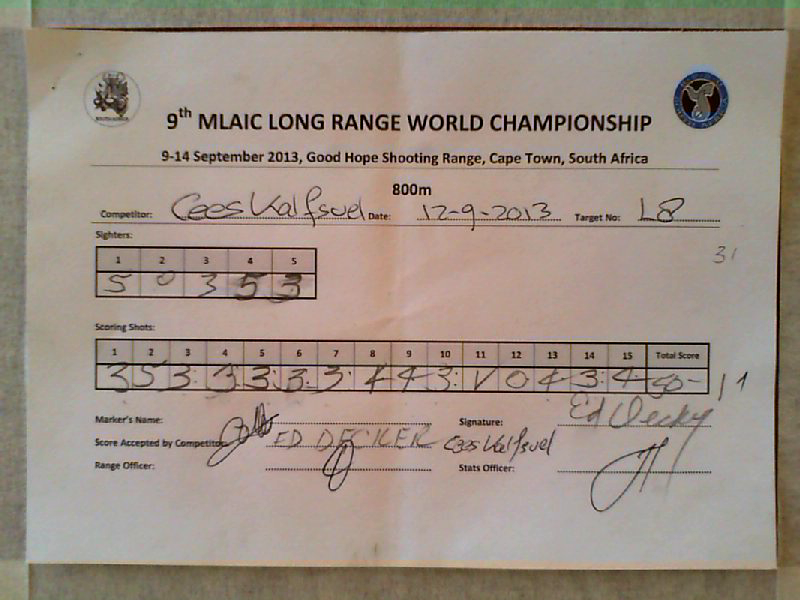 9th MLAIC LONG RANGE WORLD CHAMPIONSHIP
9-14 September 2013, Good Hope Shooting Range, Cape Town, South Africa
800m
Competitor: Cees Kalfsvel Date: 12-9-2013 Target No: L8
Sighters:
31
1 2 3 4 5
5 0 3 5 3
Scoring Shots:
1 2 3 4 5 6 7 8 9 10 11 12 13 14 15 Total Score
3 5 3 3 3 3 3 4 4 3 V 0 4 3 4
Marker's Name: Signature:
Score Accepted by Competitor: ED DECKER Cees Kalfsvel
Range Officer: Stats Officer: